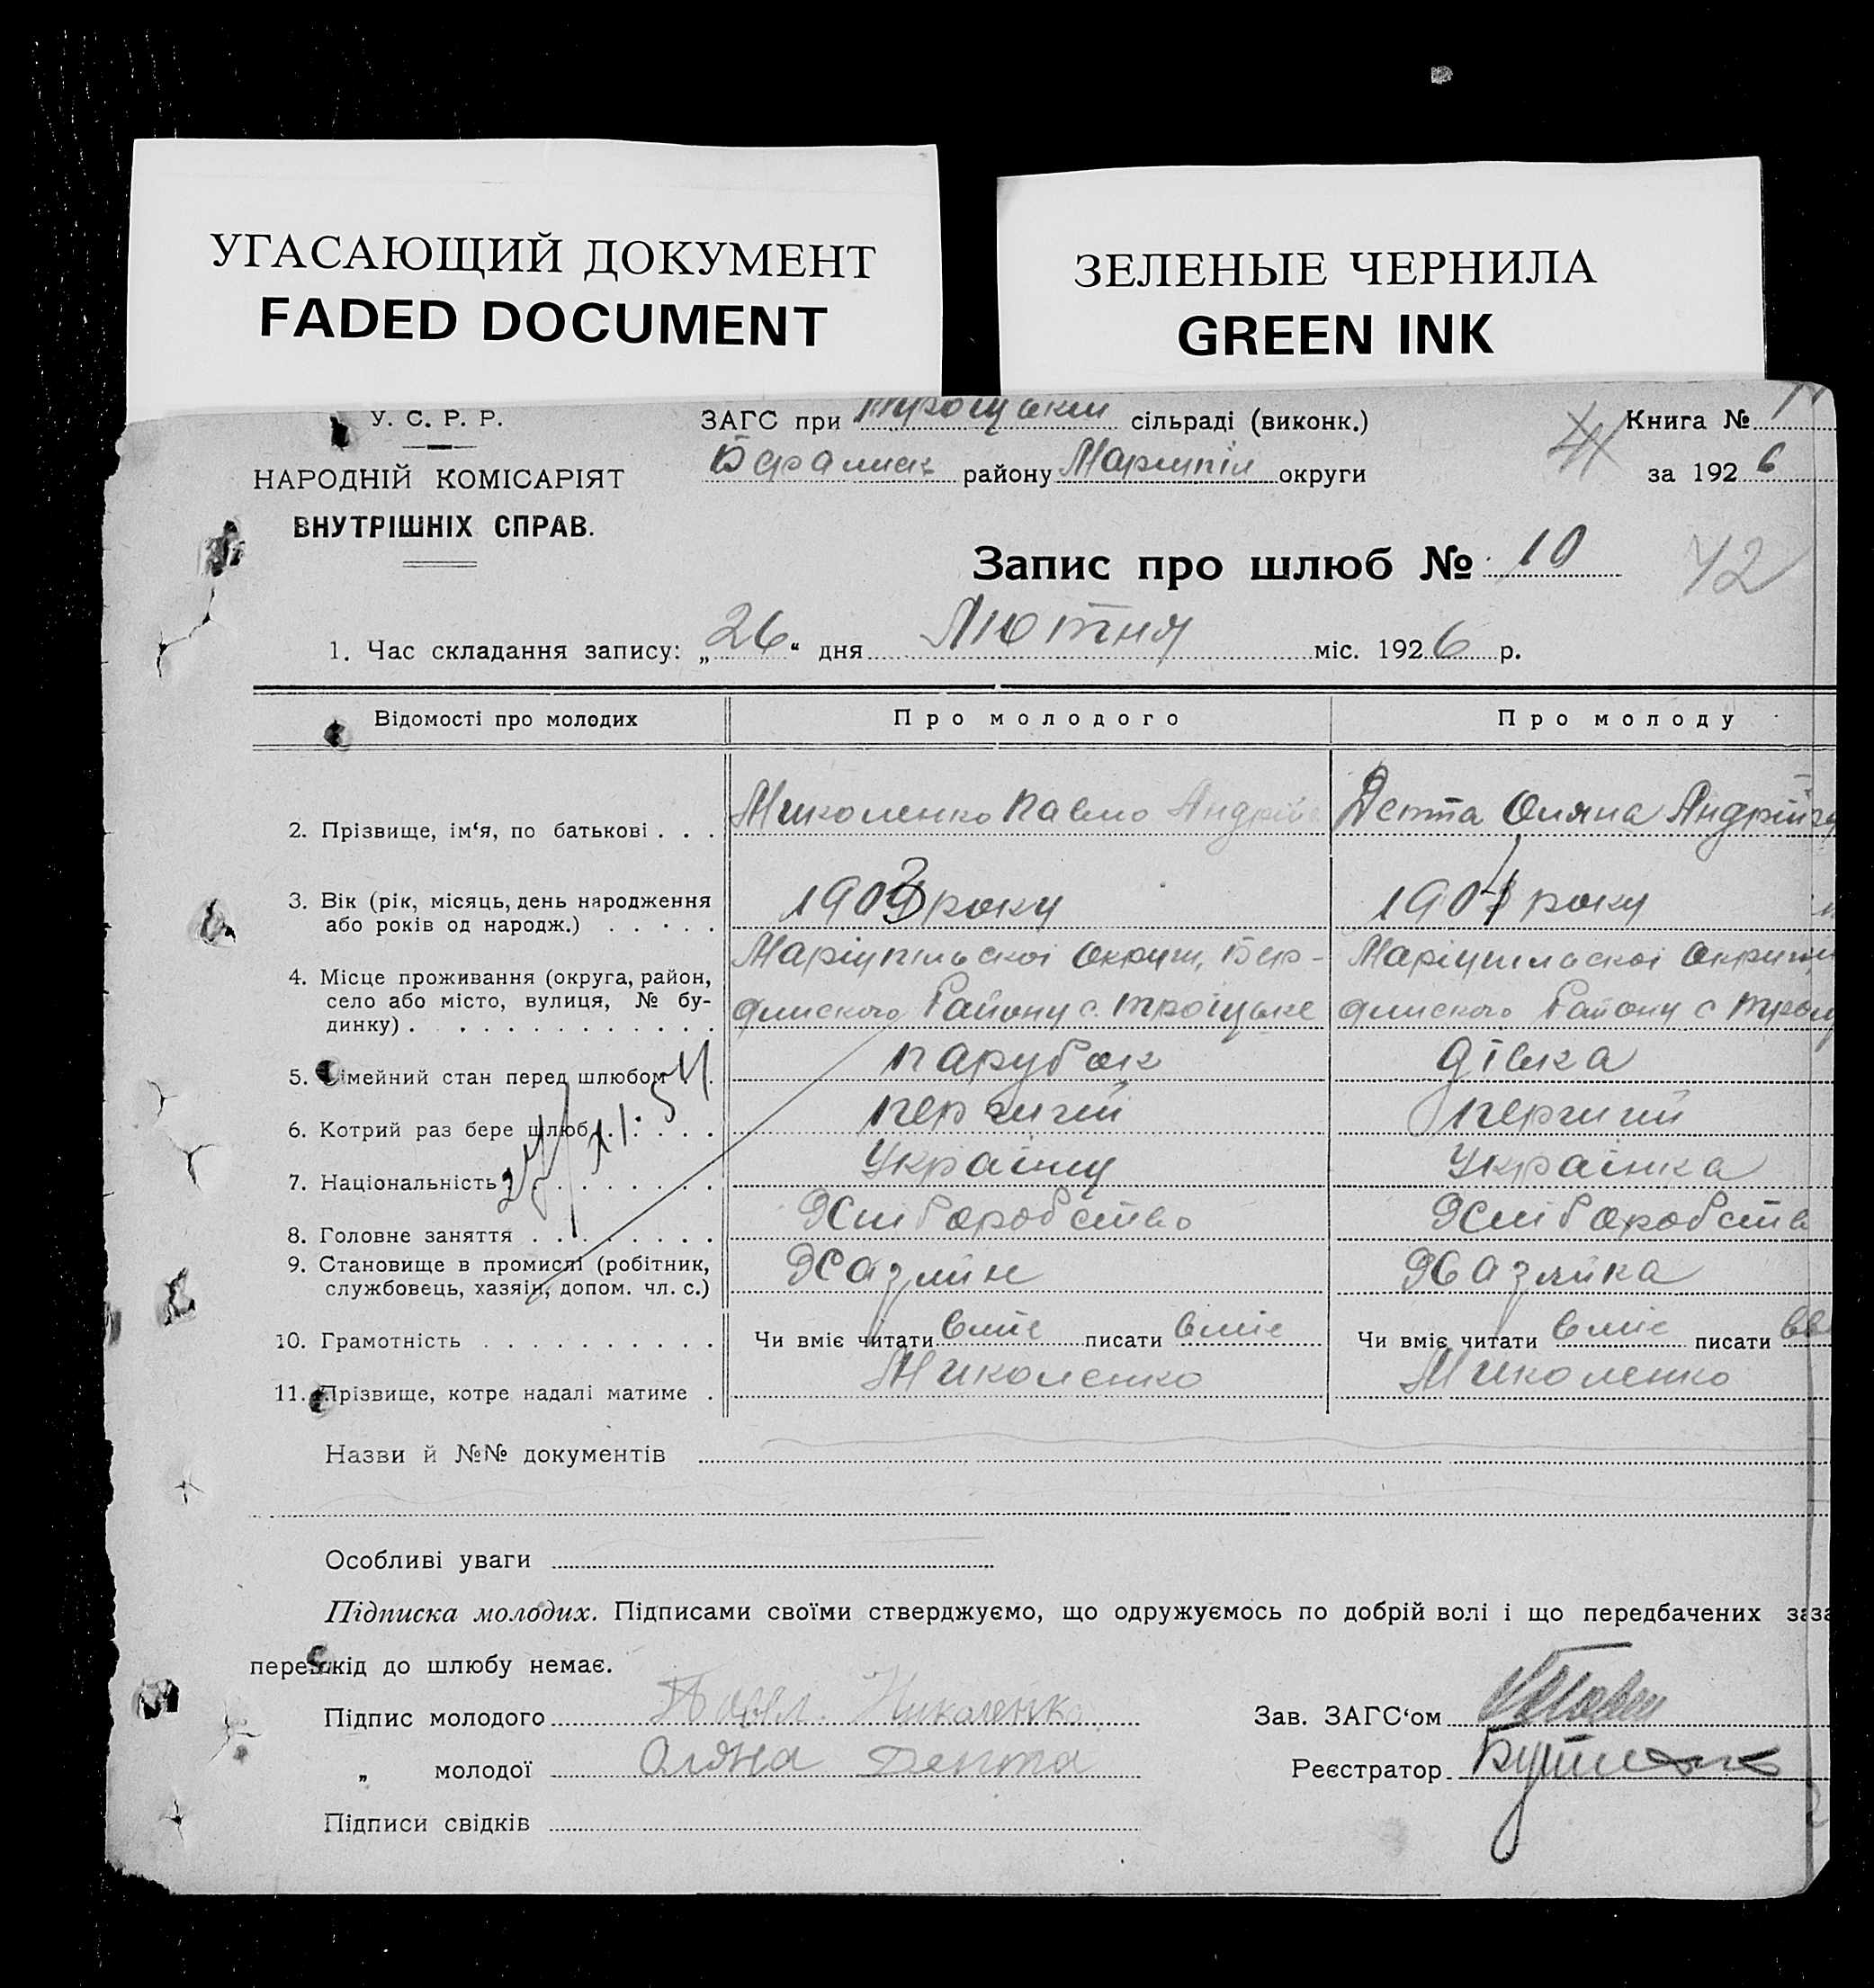 УГАСАЮЩИЙ ДОКУМЕНТ
FADED DOCUMENT
ЗЕЛЕНЫЕ ЧЕРНИЛА
GREEN INK
У. С. Р. Р.
НАРОДНІЙ КОМІСАРІЯТ
ВНУТРІШНІХ СПРАВ.
ЗАГС при Троіцькій сільраді (виконк.)
району Маріупіл округи
Книга №
за 1926
Запис про шлюб № 10
42
1. Час складання запису: „26“ дня Лютня міс. 1926 р.
Відомості про молодих Про молодого Про молоду
2. Прізвище, ім‘я, по батькові . . . Миколенко Павло Андрій Депта Оляна Андрій
3. Вік (рік, місяць, день народження
або років од народж.) . . . . . 1903 року 190 року
4. Місце проживання (округа, район,
село або місто, вулиця, № бу-
динку) . . . . . . . . . . . .
Маріупільскоі Округи, Бер-
дянского Району с. Троіцьке
Маріупільскоі Округи
дянского Району с Троіц
5. Сімейний стан перед шлюбом парубок дівка
6. Котрий раз бере шлюб . . . . . перший перший
27/XI-54
7. Національність . . . . . . . . Українц Українка
8. Головне заняття . . . . . . . . Хліборобство Хліборобств
9. Становище в промислі (робітник,
службовець, хазяїн, допом. чл. с.) Хазяїн Хазяйка
10. Грамотність . . . . . . . . . . Чи вміє читати вміє писати вміє Чи вміє читати вміє писати
11. Прізвище, котре надалі матиме . Миколенко Миколенко
Назви й №№ документів
Особливі уваги
Підписка молодих. Підписами своїми стверджуємо, що одружуємось по добрій волі і що передбачених
перешкід до шлюбу немає.
Підпис молодого Павл. Николенко Зав. ЗАГС‘ом
„ молодої Оляна Депта Реєстратор
Підписи свідків